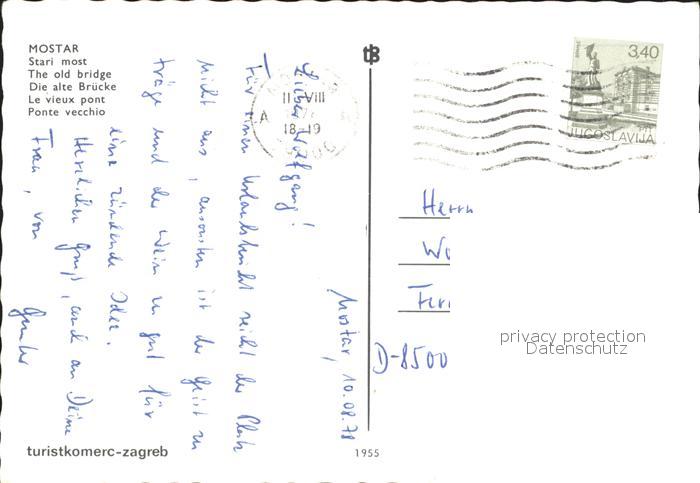 MOSTAR
Stari most
The old bridge
Die alte Brücke
Le vieux pont
Ponte vecchio
Mostar, 10.08.78
Lieber Wolfgang!
Für einen Urlaubsbericht reicht der Platz
nicht aus, ansonsten ist der Geist zu
träge und der Wein zu gut für
eine zündende Idee.
Herzlichen Gruß, auch an Deine
Frau, von
Gunter
turistkomerc-zagreb
1955
VIII
18-19
3,40
JUGOSLAVIJA
Herrn
Wo
D-8500
privacy protection
Datenschutz